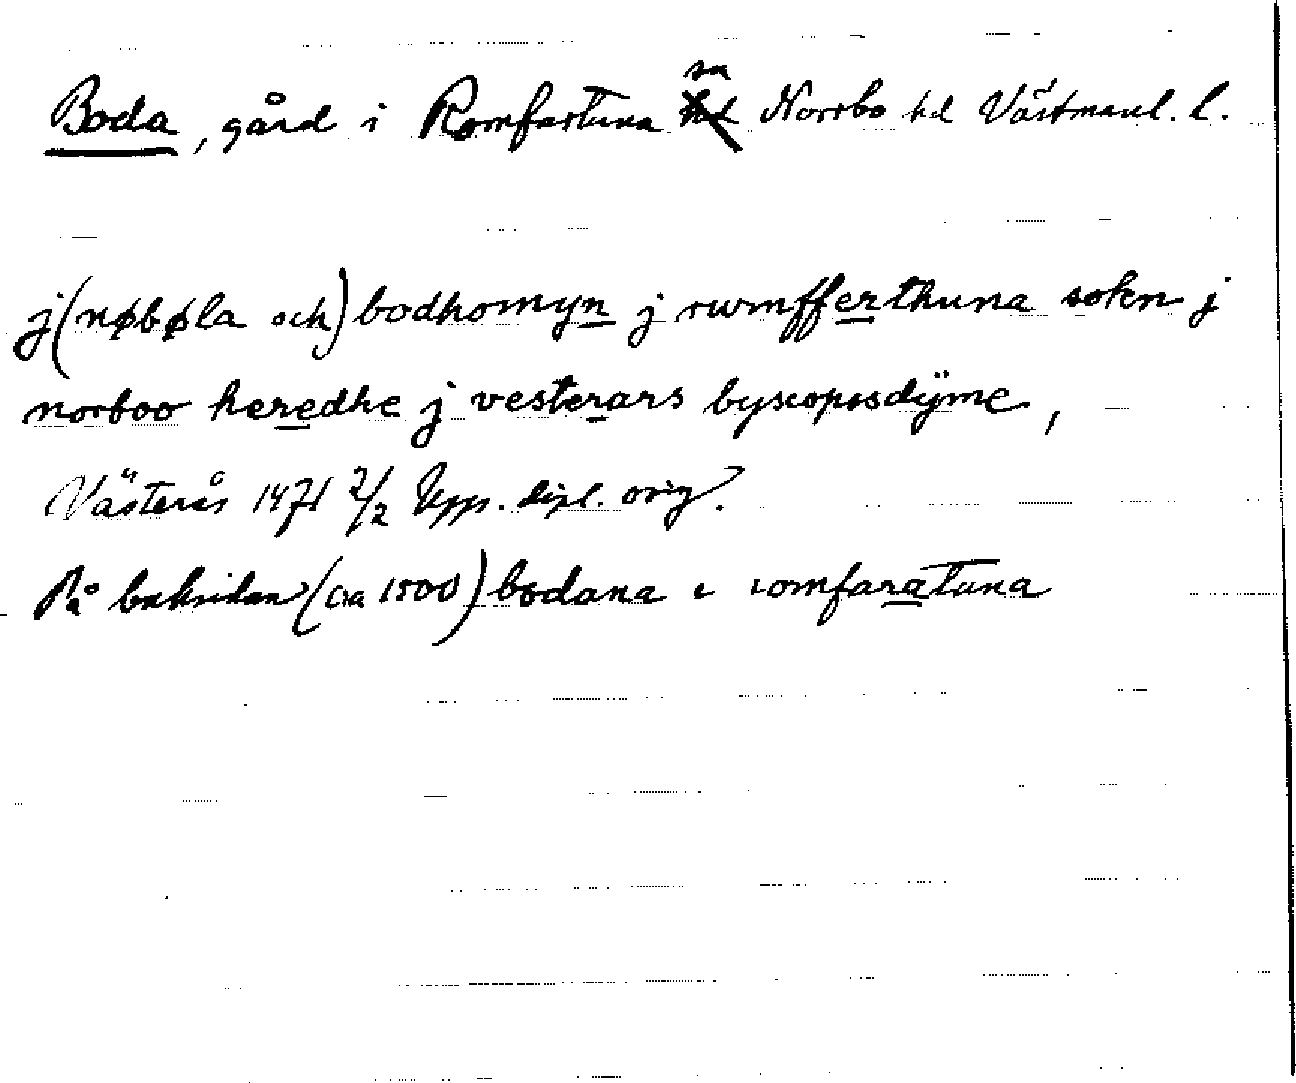 Boda, gård i Romfartuna sn Norrbo hd Västmanl. l.
j (nøbøla och) bodhomyn j rumffferthuna sokn j
norboo heredhe j vesterars byscopsdÿme,
Västerås 1471 2/2 Upps. dipl. orig.
På baksidan (ca 1500) bodana i romfaratuna